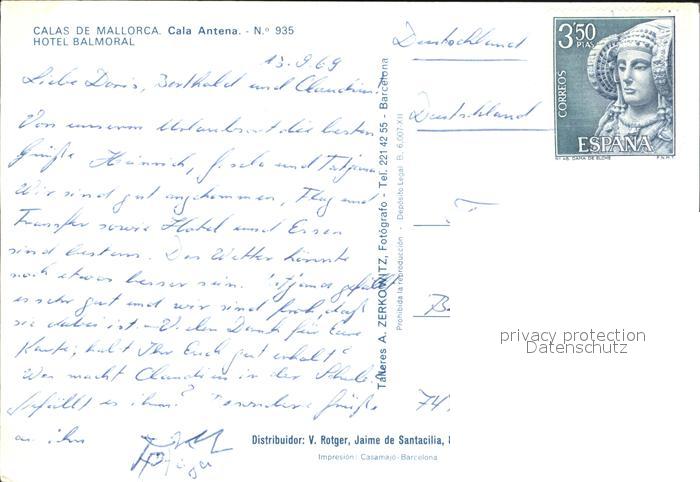 CALAS DE MALLORCA. Cala Antena. - N.º 935
HOTEL BALMORAL
13.9.69
Liebe Doris, Berthold und Claudius!
Von unserem Urlaubsort die besten
Grüße Heinrich, Gisela und Tatjana
Wir sind gut angekommen, Flug und
Transfer sowie Hotel und Essen
sind bestens. Das Wetter könnte
noch etwas besser sein. Tatjana gefällt
es sehr gut und wir sind froh, daß
sie dabei ist. Vielen Dank für Eure
Karte; habt Ihr Euch gut erholt?
Was macht Claudius in der Schule.
Gefällt es ihm? Besondere Grüße
an ihn
Talleres A. ZERKOWITZ, Fotógrafo - Tel. 221 42 55 - Barcelona
Prohibida la reproducción - Depósito Legal B. 6.007-XII
Distribuidor: V. Rotger, Jaime de Santacilia,
Impresión: Casamajó-Barcelona
Deutschland
Deutschland
74
3'50 PTAS
CORREOS
ESPAÑA
DAMA DE ELCHE
F.N.M.T.
privacy protection
Datenschutz